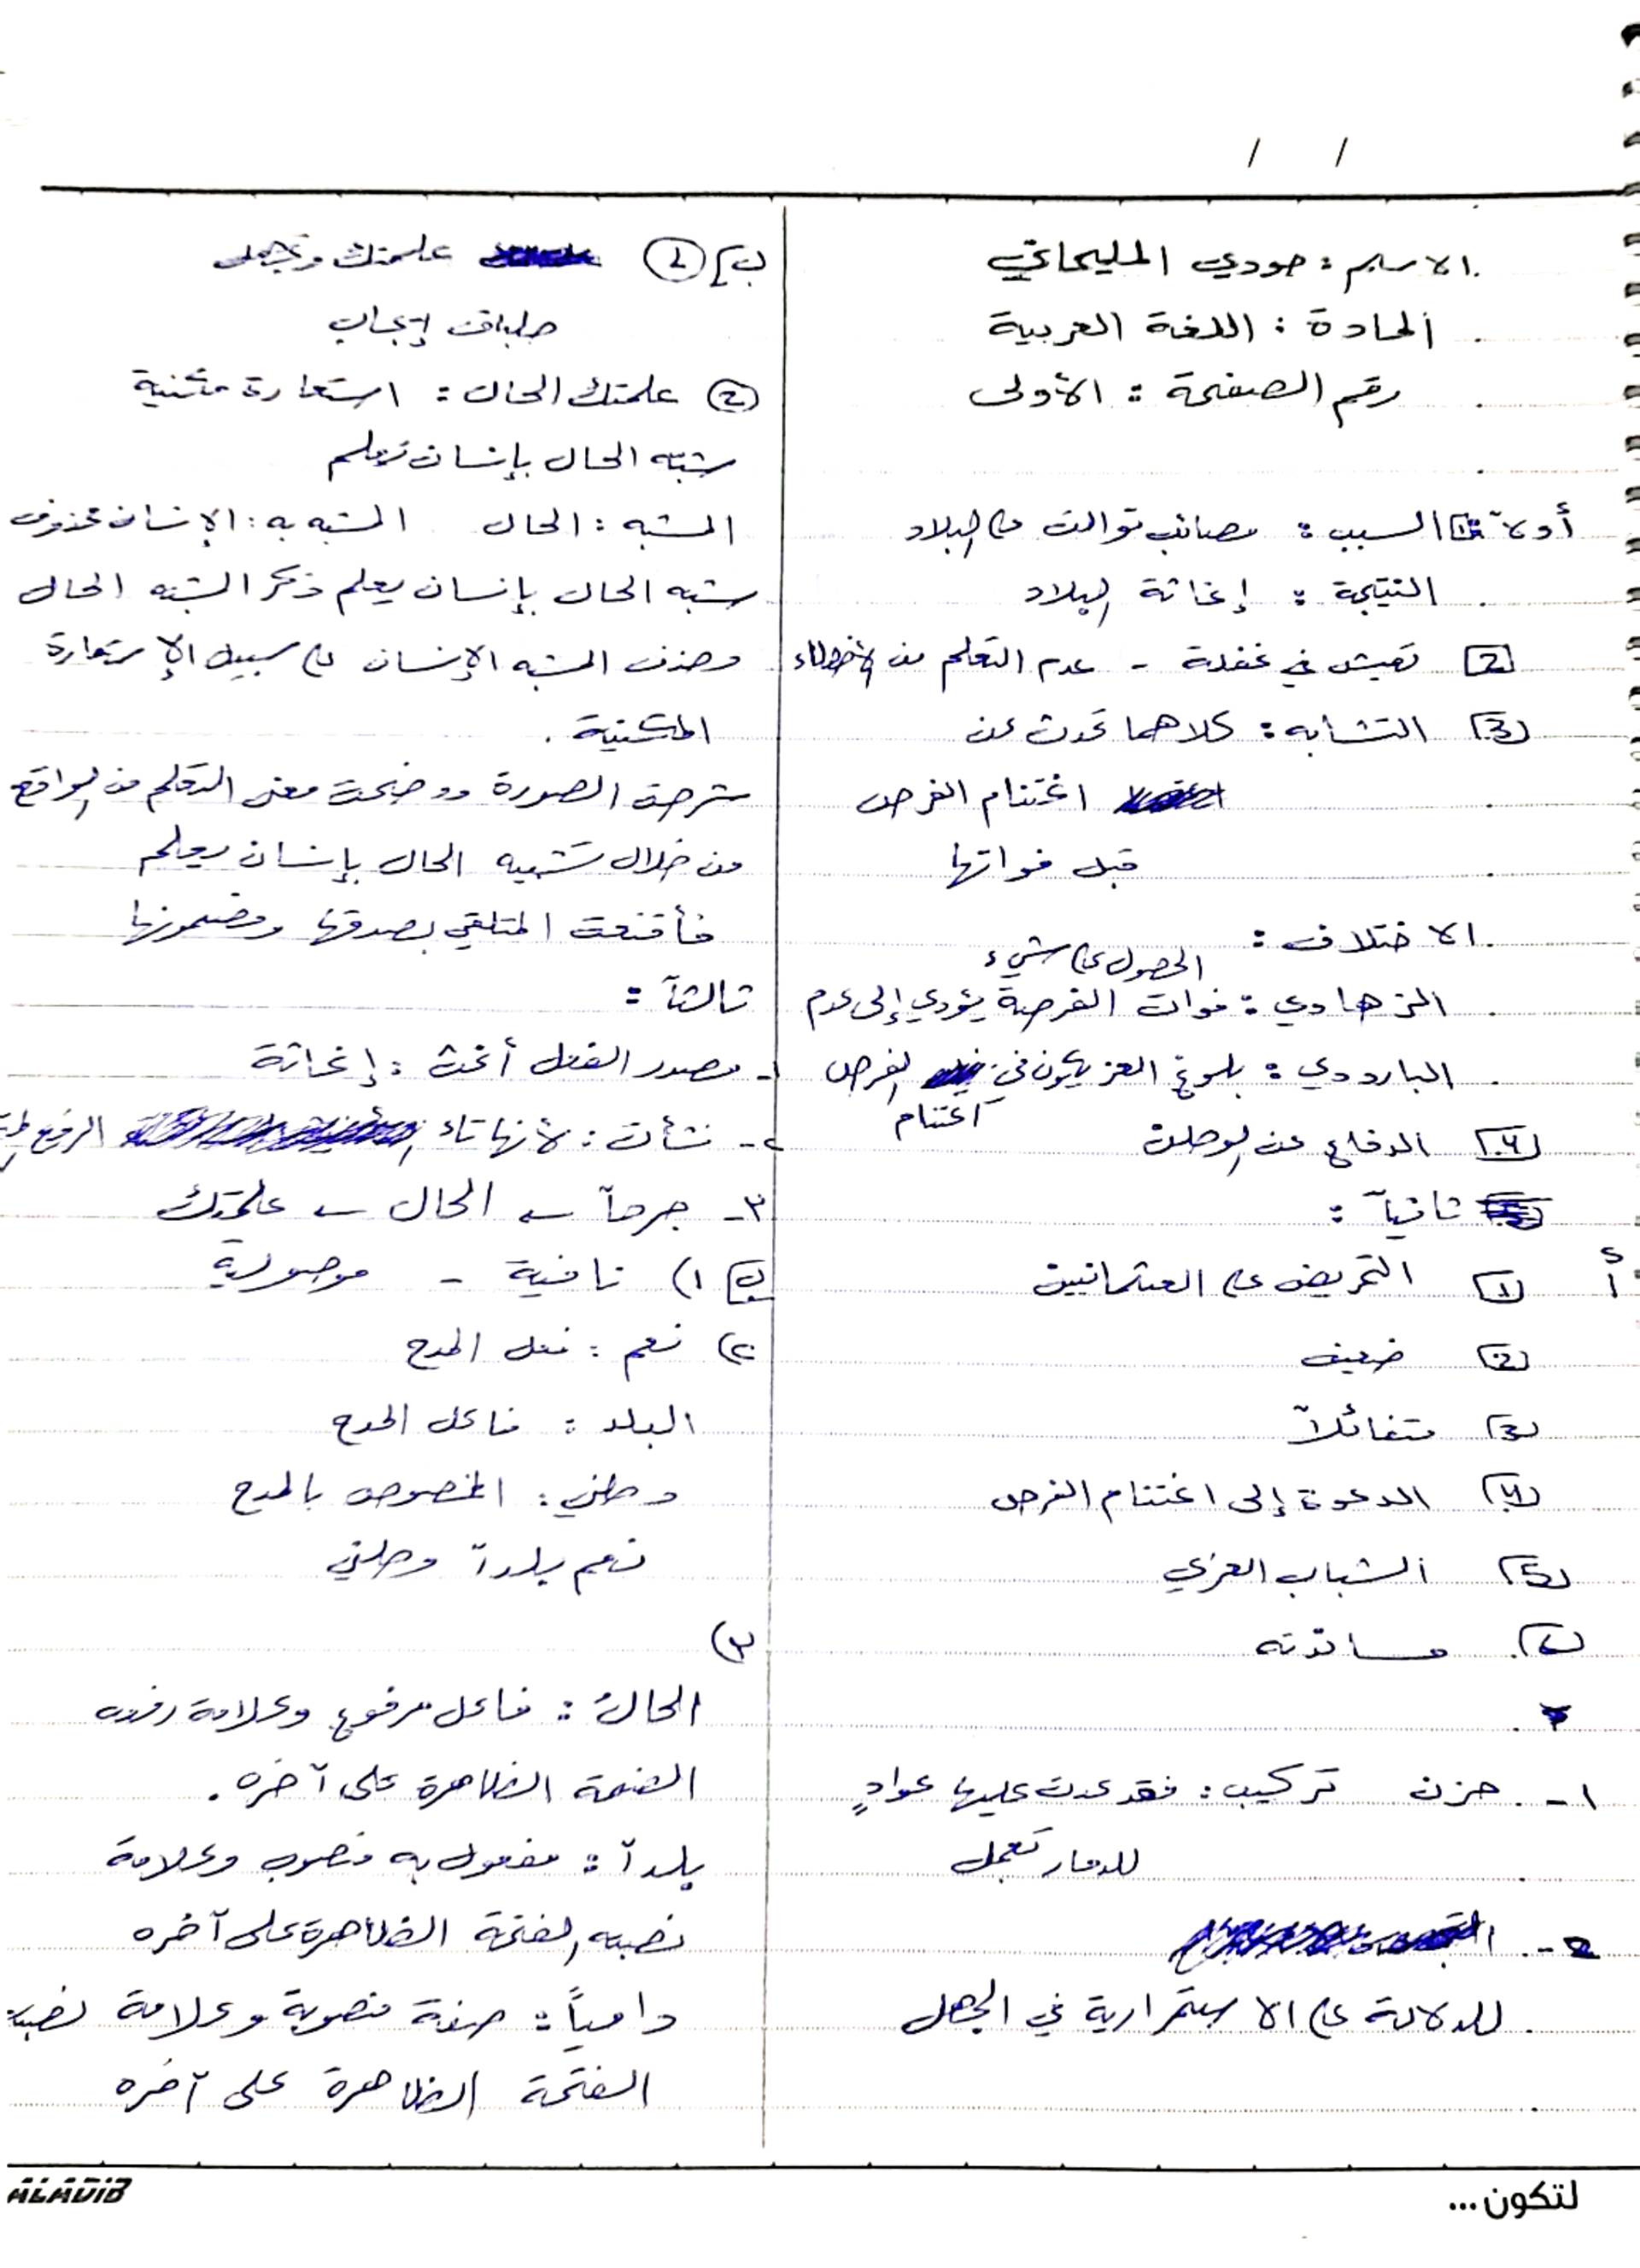 الاسم: جودي المليحاني
المادة: اللغة العربية
رقم الصفحة: الأولى
أولاً: 1 السبب: مصائب توالت على البلاد
النتيجة: إغاثة البلاد
2 تعيش في غفلة - عدم التعلم من الأخطاء
3 التشابه: كلاهما تحدث عن
اغتنام الفرص
قبل فواتها
الاختلاف:
الحصول على شيء
الزهاوي: فوات الفرصة يؤدي إلى عدم
البارودي: بلوغ العز يكون في الفرص
اغتنام
4 الدفاع عن الوطن
ثانياً:
أ 1 التحريض على العثمانيين
2 ضعيف
3 متفائلاً
4 الدعوة إلى اغتنام الفرص
5 الشباب العربي
6 مساندته
1- حزن تركيب: فقد عدت عليها عوادٍ
للدمار تعجل
2-
للدلالة على الاستمرارية في الجهل
ب] 1 علمتك وتجهل
طباق إيجاب
2 علمتك الحال: استعارة مكنية
شبّه الحال بإنسان يعلم
المشبه: الحال المشبه به: الإنسان محذوف
شبه الحال بإنسان يعلم ذكر المشبه الحال
وحذف المشبه الإنسان على سبيل الإستعارة
المكنية.
شرحت الصورة ووضحت معنى التعلم من الواقع
من خلال تشبيه الحال بإنسان يعلم
فأقنعت المتلقي بصدقها ومضمونها
ثالثاً:
1- مصدر الفعل أغث: إغاثة
2- نشأت: لأنها تاء الرفع
3- جرحاً ← الحال ← علمتك
ب] 1) نافية - موصولية
2) نعم: فعل المدح
البلد: فاعل المدح
وطني: المخصوص بالمدح
نعم بلداً وطني
3)
الحالُ: فاعل مرفوع وعلامة رفعه
الضمة الظاهرة على آخره.
بلداً: مفعول به منصوب وعلامة
نصبه الفتحة الظاهرة على آخره
دامياً: صفة منصوبة وعلامة نصبه
الفتحة الظاهرة على آخره
لتكون...
ALADIB